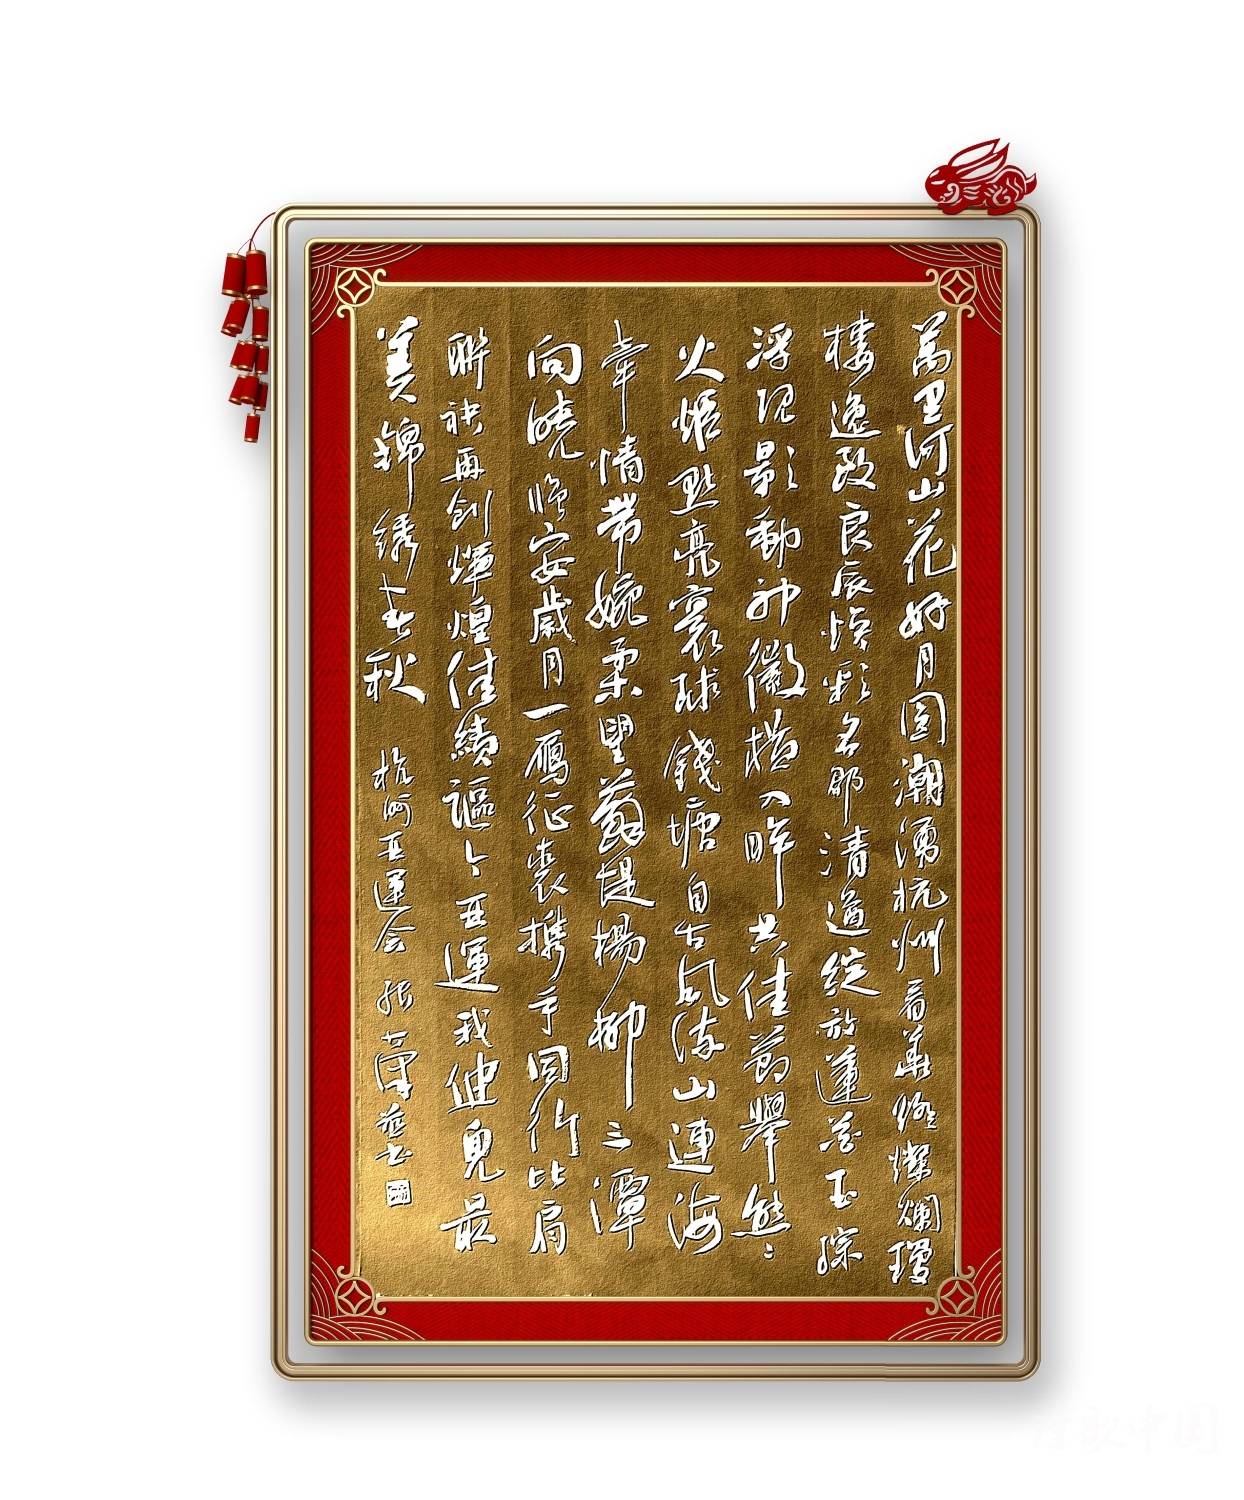 萬里河山花好月圆潮湧杭州看華燈燦爛瓊
樓逸致良辰焕彩名郡清遒綻放蓮花玉琮
浮現影動神徽榄入眸共佳節舉熊々
火炬點亮寰球錢塘自古風流山連海
牽情帶婉柔望蘇堤楊柳三潭
向曉臨安歲月一雁征裘携手同行比肩
聯袂再創煇煌佳績謳々亞運我健兒最
美錦綉春秋
杭州亞運会 張